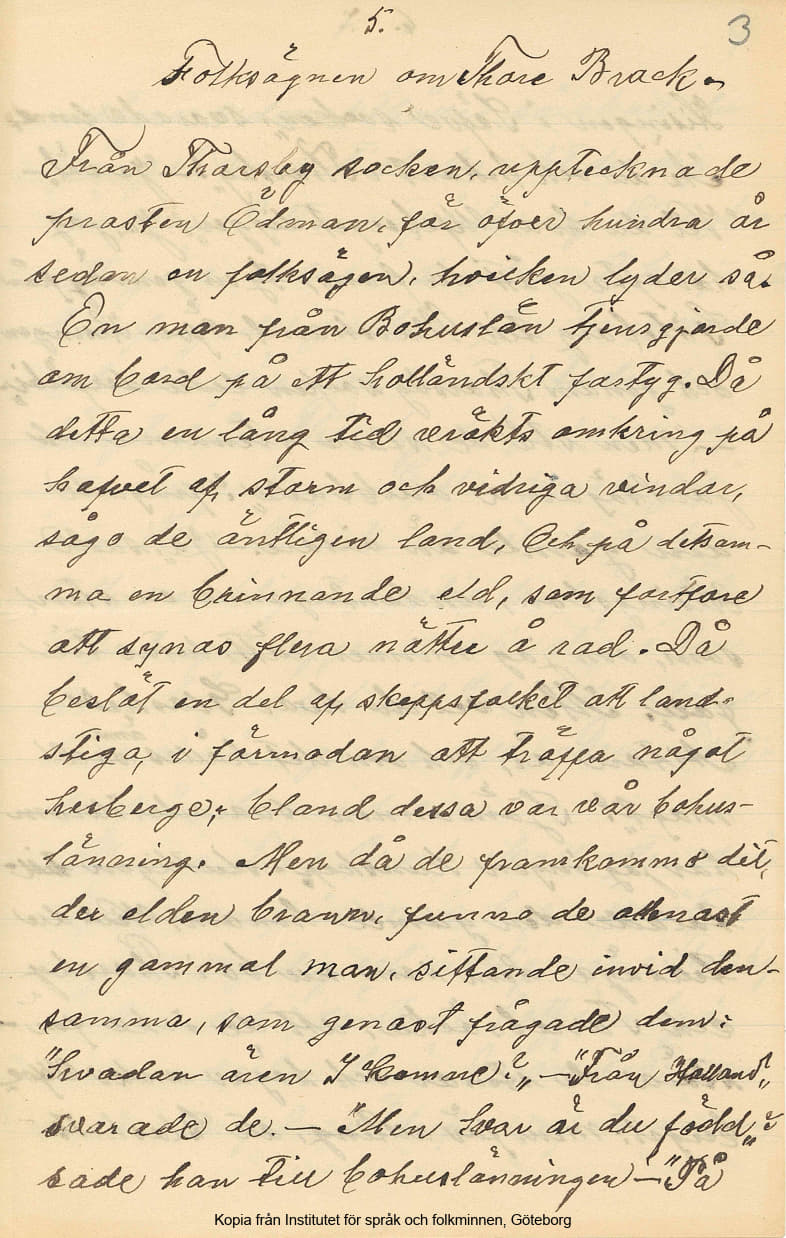 5.
3
Folksägnen om Thore Brack.
Från Thorsby socken, upptecknade
prosten Ödman, för öfver hundra år
sedan en folksägen, hvilken lyder så.
En man från Bohuslän tjensgjorde
om bord på ett holländskt fartyg. Då
detta en lång tid vräkts omkring på
hafvet af storm och vidriga vindar,
sågo de äntligen land, Och på detsam-
ma en brinnande eld, som fortfore
att synas flera nätter å rad. Då
beslöt en del af skeppsfolket att land-
stiga, i förmodan att träffa något
herberge; bland dessa var vår bohus-
länning. Men då de framkommo dit,
der elden brann, funno de allenast
en gammal man, sittande invid den-
samma, som genast frågade dem:
"Hvadan ären I komne?„ — "Från Holland„
svarade de. — "Men hvar är du född„?
sade han till bohuslänningen — "På
Kopia från Institutet för språk och folkminnen, Göteborg